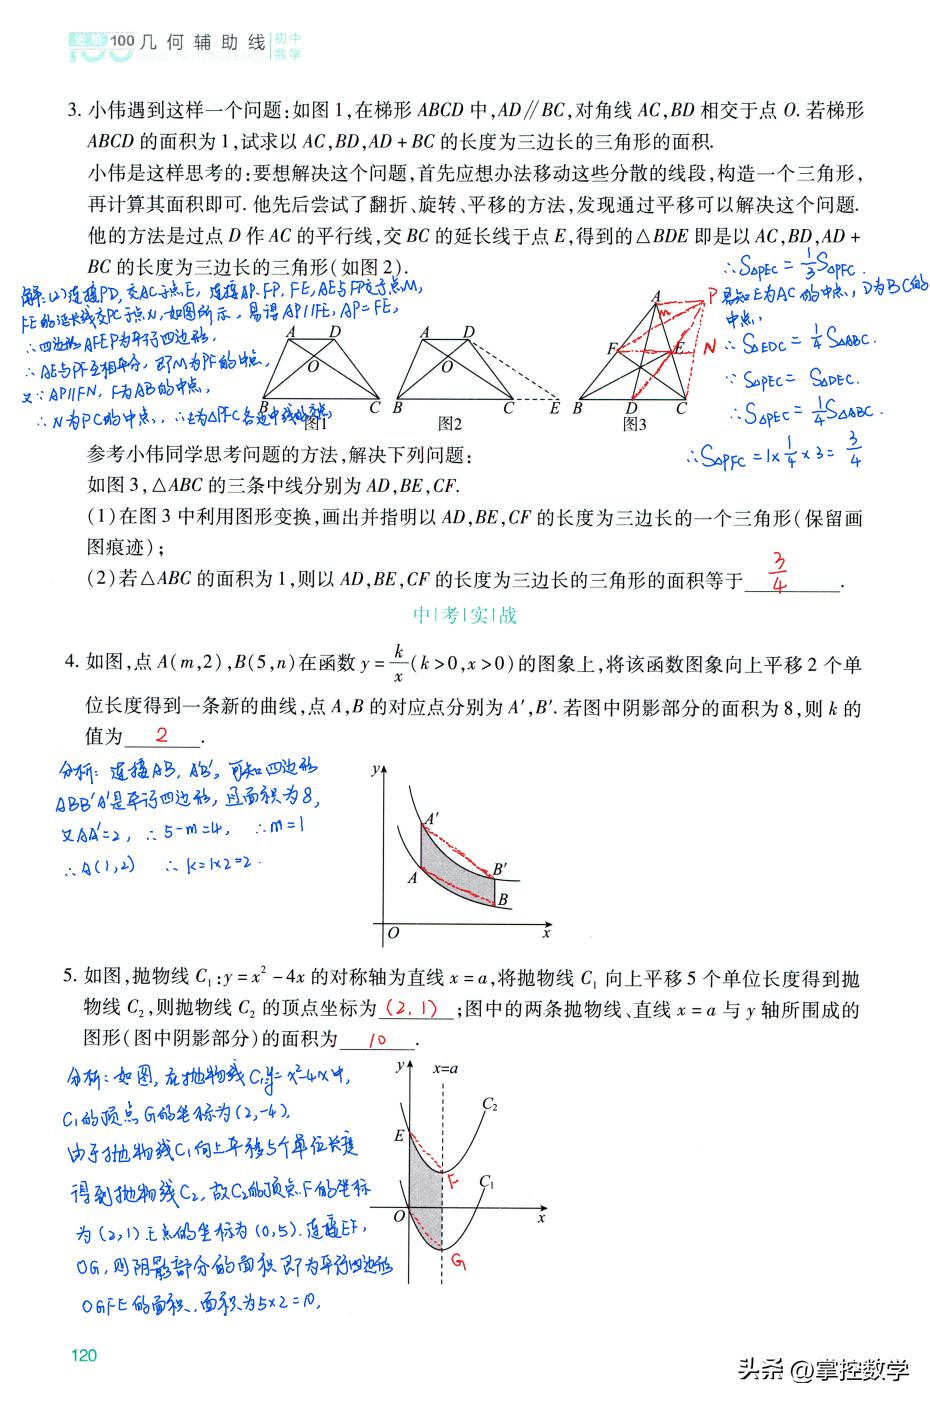 进阶100 几何辅助线 初中数学
3. 小伟遇到这样一个问题:如图1,在梯形 ABCD 中,AD∥BC,对角线 AC,BD 相交于点 O. 若梯形
ABCD 的面积为1,试求以 AC,BD,AD+BC 的长度为三边长的三角形的面积.
小伟是这样思考的:要想解决这个问题,首先应想办法移动这些分散的线段,构造一个三角形,
再计算其面积即可. 他先后尝试了翻折、旋转、平移的方法,发现通过平移可以解决这个问题.
他的方法是过点 D 作 AC 的平行线,交 BC 的延长线于点 E,得到的△BDE 即是以 AC,BD,AD+
BC 的长度为三边长的三角形(如图2).
解:(2)连接PD,交AC于点E,连接AP,FP,FE,AE与FP交于点M,
FE的延长线交PC于点N,如图所示,易得AP∥FE,AP=FE,
∴四边形AFEP为平行四边形,
∴AE与PF互相平分,即M为PF的中点,
又∵AP∥FN,F为AB的中点,
∴N为PC的中点,∴E为△PFC各边中线的交点
∴S△PEC=1/3S△PFC.
易知E为AC的中点,D为BC的
中点,
∴S△EDC=1/4S△ABC.
∵S△PEC=S△DEC.
∴S△PEC=1/4S△ABC.
∴S△PFC=1×1/4×3=3/4
A D
O
B C
图1
A D
O
B C E
图2
A P
M
F E N
B D C
图3
参考小伟同学思考问题的方法,解决下列问题:
如图3,△ABC 的三条中线分别为 AD,BE,CF.
(1)在图3中利用图形变换,画出并指明以 AD,BE,CF 的长度为三边长的一个三角形(保留画
图痕迹);
(2)若△ABC 的面积为1,则以 AD,BE,CF 的长度为三边长的三角形的面积等于 3/4 .
中考实战
4. 如图,点 A(m,2),B(5,n)在函数 y=k/x(k>0,x>0)的图象上,将该函数图象向上平移2个单
位长度得到一条新的曲线,点 A,B 的对应点分别为 A′,B′. 若图中阴影部分的面积为8,则 k 的
值为 2 .
分析:连接AB,A'B',可知四边形
ABB'A'是平行四边形,且面积为8,
又AA'=2,∴5-m=4,∴m=1
∴A(1,2) ∴k=1×2=2.
y
A′
B′
A
B
O x
5. 如图,抛物线 C₁:y=x²-4x 的对称轴为直线 x=a,将抛物线 C₁ 向上平移5个单位长度得到抛
物线 C₂,则抛物线 C₂ 的顶点坐标为 (2,1) ;图中的两条抛物线、直线 x=a 与 y 轴所围成的
图形(图中阴影部分)的面积为 10 .
分析:如图,在抛物线C₁:y=x²-4x中,
C₁的顶点G的坐标为(2,-4).
由于抛物线C₁向上平移5个单位长度
得到抛物线C₂,故C₂的顶点F的坐标
为(2,1)E点的坐标为(0,5).连接EF,
OG,则阴影部分的面积即为平行四边形
OGFE的面积,面积为5×2=10,
y x=a
C₂
E
F C₁
O x
G
120
头条 @掌控数学